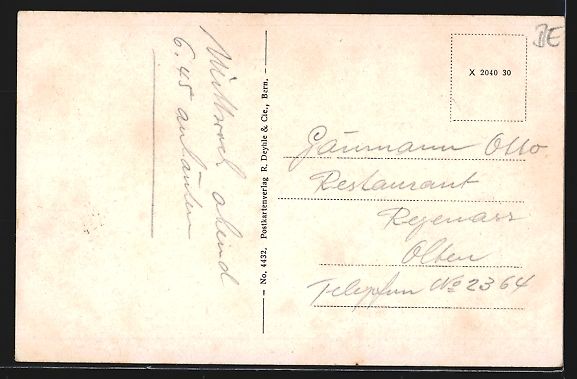 Mittwoch abend
6.45 anläuten
No. 4432. Postkartenverlag R. Deyhle & Cie., Bern.
X 2040 30
BE
Gäumann Otto
Restaurant
Olten
Telephon No 2364